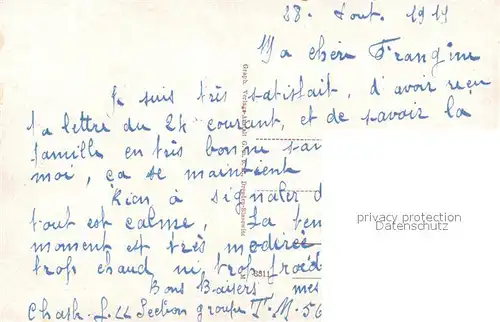 28. Aout. 1919
Ma chère Frangine
Je suis très satisfait, d'avoir reçu
ta lettre du 24 courant, et de savoir la
famille en très bonne san
moi, ça se maintient
Rien à signaler d
tout est calme, La tem
moment est très modéré
trop chaud, ni trop froid
Bons Baisers, mes
section groupe T.M. 56
privacy protection
Datenschutz